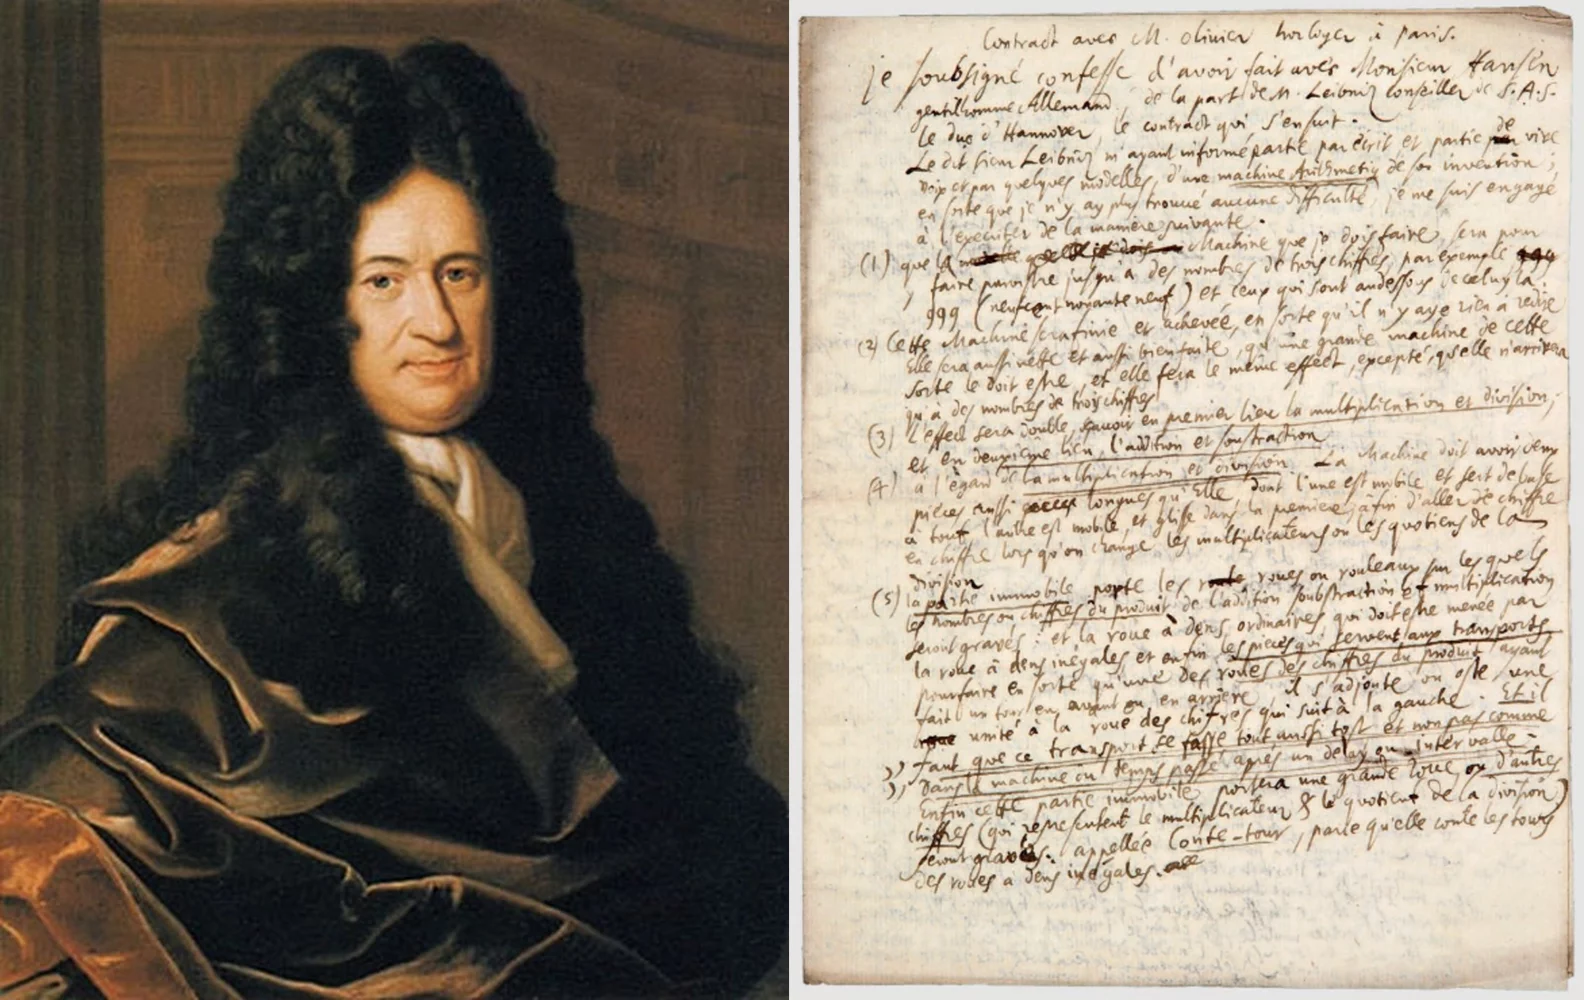 Contract avec M. Olivier horloger à Paris.
je soubsigné confesse d'avoir fait avec Monsieur Hansen
gentilhomme Allemand, de la part de M. Leibniz Conseiller de S.A.S.
le duc d'Hannover, le contract qui s'ensuit.
Le dit Sieur Leibniz m'ayant informé partie par écrit et partie de vive
voix et par quelques modelles, d'une machine Arithmetiq de son invention;
en sorte que je n'y ay plus trouué aucune difficulté, je me suis engagé
à l'executer de la maniere suivante.
(1) que la Machine que je dois faire, sera pour
faire paroistre jusqu'à des nombres de trois chiffres, par exemple 999
999 (neufcent nonante neuf) et ceux qui sont audessous de celuy la.
(2) Cette Machine sera finie et achevée, en sorte qu'il n'y aye rien à redire
Elle sera aussi nette et aussi bien faite, qu'une grande machine de cette
sorte le doit estre, et elle fera le même effect, excepté, qu'elle n'arrivera
qu'à des nombres de trois chiffres
(3) L'effect sera double, sçavoir en premier lieu la multiplication et division;
et en deuxieme lieu, l'addition et soustraction
(4) à l'égard de la multiplication et division. La Machine doit avoir deux
pieces aussi longues qu'Elle, dont l'une est mobile et sert de base
à tout, l'autre est mobile, et glisse dans la premiere, à fin d'aller de chiffre
en chiffre lors qu'on change les multiplicateurs ou les quotiens de la
division
(5) la partie immobile porte les roues ou rouleaux sur les quels
les nombres ou chiffres du produit de l'addition soubstraction et multiplication
seront gravés; et la roue à dens ordinaires qui doit estre menée par
la roue à dens inégales et enfin les pieces qui servent aux transports
pour faire en sorte qu'une des roues des chiffres du produit ayant
fait un tour en avant ou en arriere il s'adjoute ou oste une
unité à la roue des chifres qui suit à la gauche. Et il
faut que ce transport se fasse tout aussi tost et non pas comme
dans la machine du temps passé apres un delay ou intervalle.
Enfin cette partie immobile portera une grande roue, ou d'autres
chiffres (qui representent le multiplicateur & le quotient de la division)
seront gravés. appellée Conte-tour, parce qu'elle conte les tours
des roues a dens inégales.